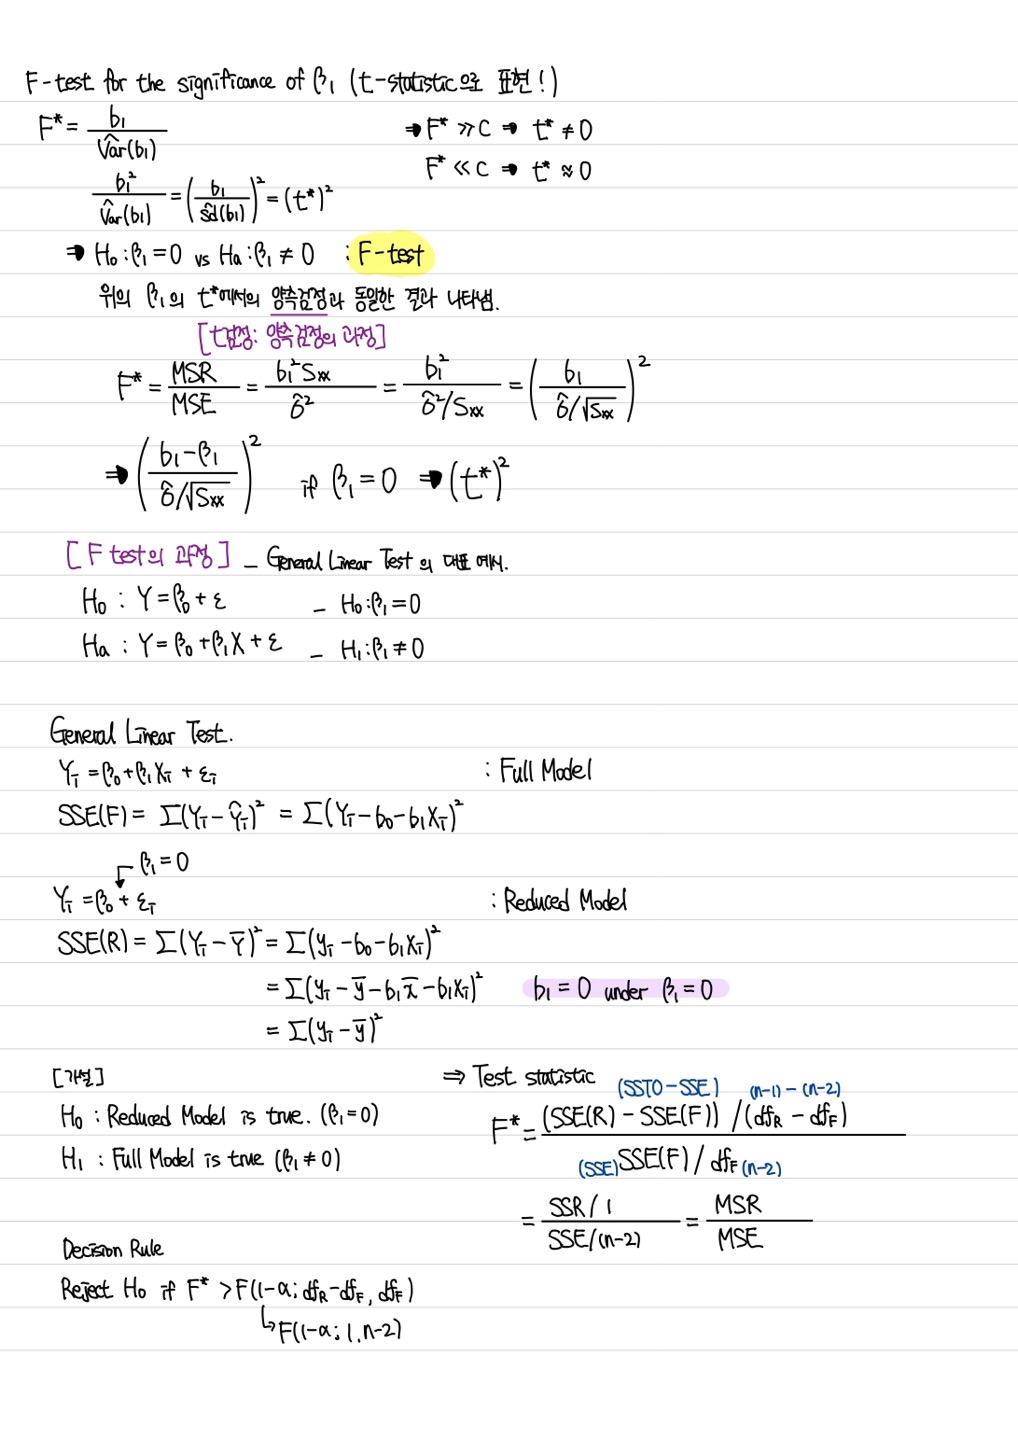 F-test for the significance of β₁ (t-statistic으로 표현!)
F* = b₁ / V̂ar(b₁)
⇒ F* ≫ C ⇒ t* ≠ 0
F* ≪ C ⇒ t* ≈ 0
b₁² / V̂ar(b₁) = (b₁ / ŝd(b₁))² = (t*)²
⇒ H₀ : β₁ = 0 vs Ha : β₁ ≠ 0 : F-test
위의 β₁의 t*에서의 양측검정과 동일한 결과 나타냄.
[t검정: 양측검정의 과정]
F* = MSR / MSE = b₁² Sxx / σ̂² = b₁² / (σ̂²/Sxx) = (b₁ / (σ̂/√Sxx))²
⇒ ((b₁ - β₁) / (σ̂/√Sxx))² if β₁ = 0 ⇒ (t*)²
[F test의 과정] - General Linear Test의 대표 예시.
H₀ : Y = β₀ + ε - H₀ : β₁ = 0
Ha : Y = β₀ + β₁X + ε - H₁ : β₁ ≠ 0
General Linear Test.
Yᵢ = β₀ + β₁Xᵢ + εᵢ : Full Model
SSE(F) = Σ(Yᵢ - Ŷᵢ)² = Σ(Yᵢ - b₀ - b₁Xᵢ)²
β₁ = 0
Yᵢ = β₀ + εᵢ : Reduced Model
SSE(R) = Σ(Yᵢ - Ȳ)² = Σ(yᵢ - b₀ - b₁xᵢ)²
= Σ(yᵢ - ȳ - b₁x̄ - b₁xᵢ)² b₁ = 0 under β₁ = 0
= Σ(yᵢ - ȳ)²
[가설]
H₀ : Reduced Model is true. (β₁ = 0)
H₁ : Full Model is true (β₁ ≠ 0)
⇒ Test statistic
(SSTO - SSE) (n-1) - (n-2)
F* = (SSE(R) - SSE(F)) / (df_R - df_F)
(SSE) SSE(F) / df_F (n-2)
= SSR / 1 / SSE/(n-2) = MSR / MSE
Decision Rule
Reject H₀ if F* > F(1-α; df_R - df_F, df_F)
↳ F(1-α; 1, n-2)